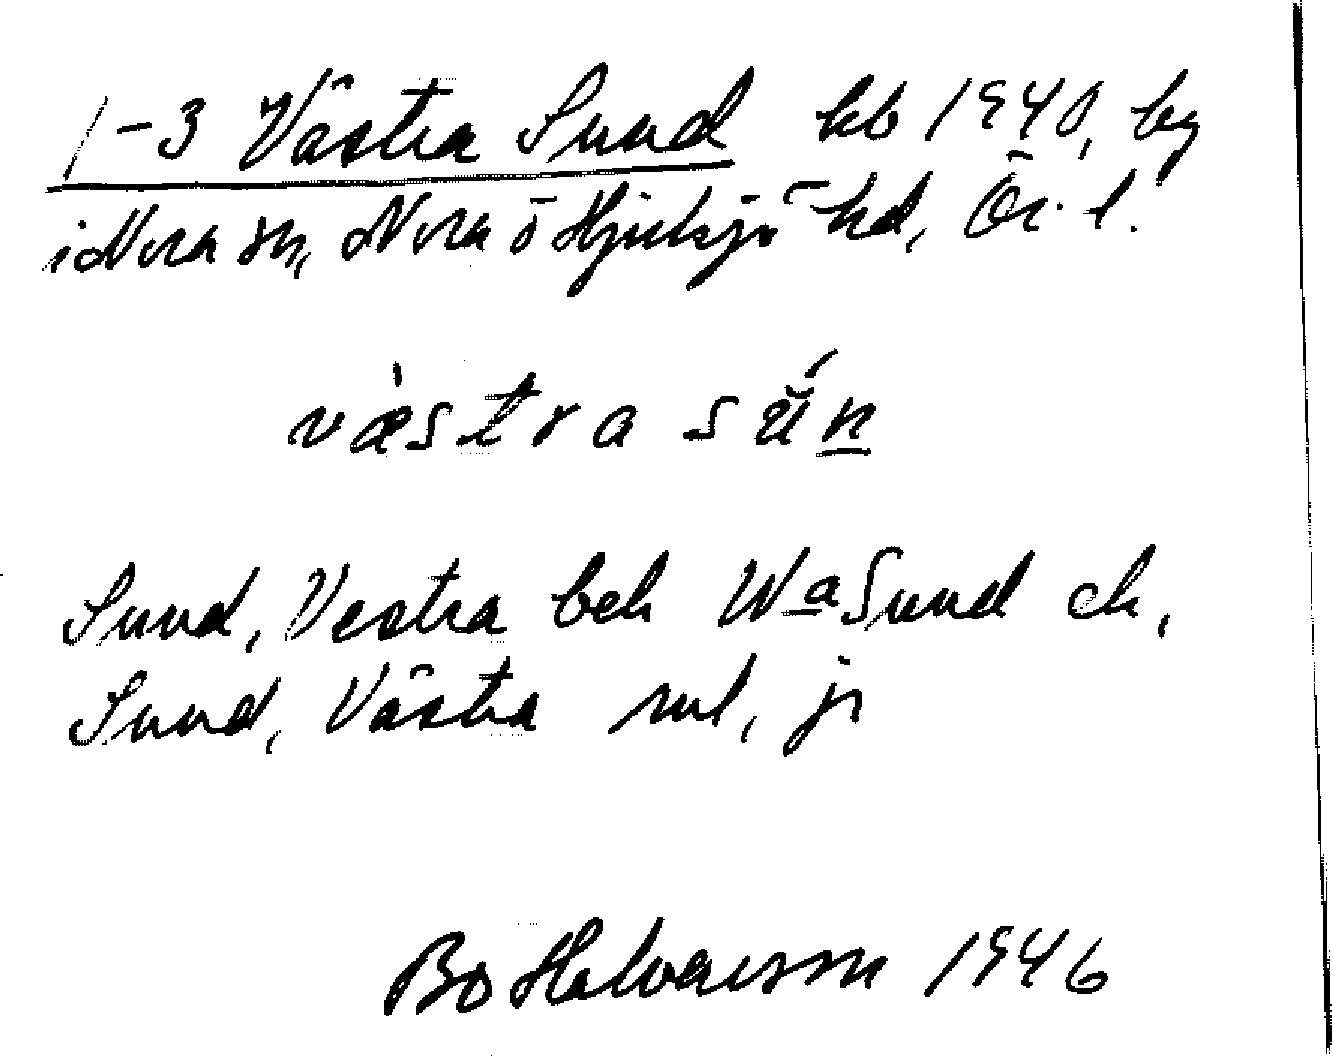 1-3 Västra Sund kb 1940, by
i Nora sn, Nora o Hjulsjö hd, Ör. l.
væ̀stra sŭ́n
Sund, Vestra bek Wa Sund ek,
Sund, Västra rul, jr
Bo Halvarsson 1946